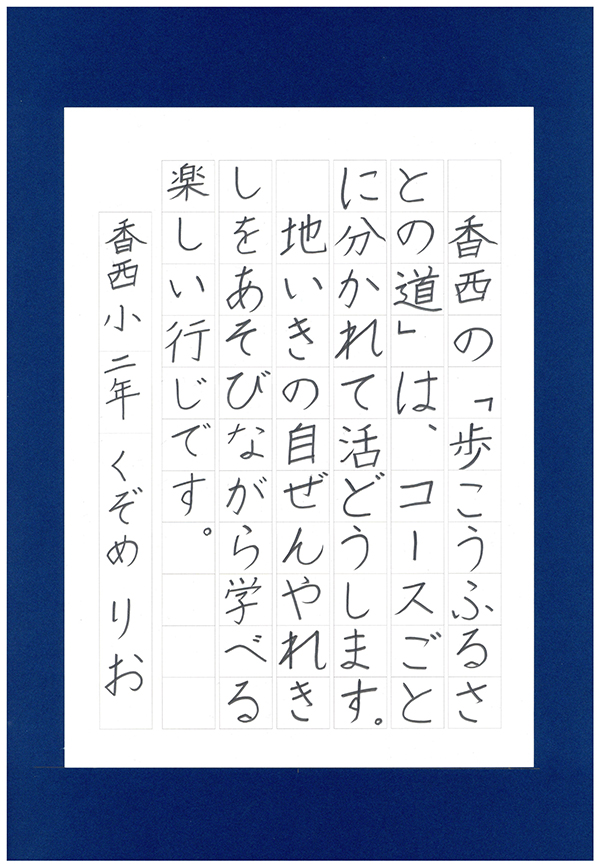 香西の「歩こうふるさ
との道」は、コースごと
に分かれて活どうします。
地いきの自ぜんやれき
しをあそびながら学べる
楽しい行じです。
香西小 二年 くぞめ りお